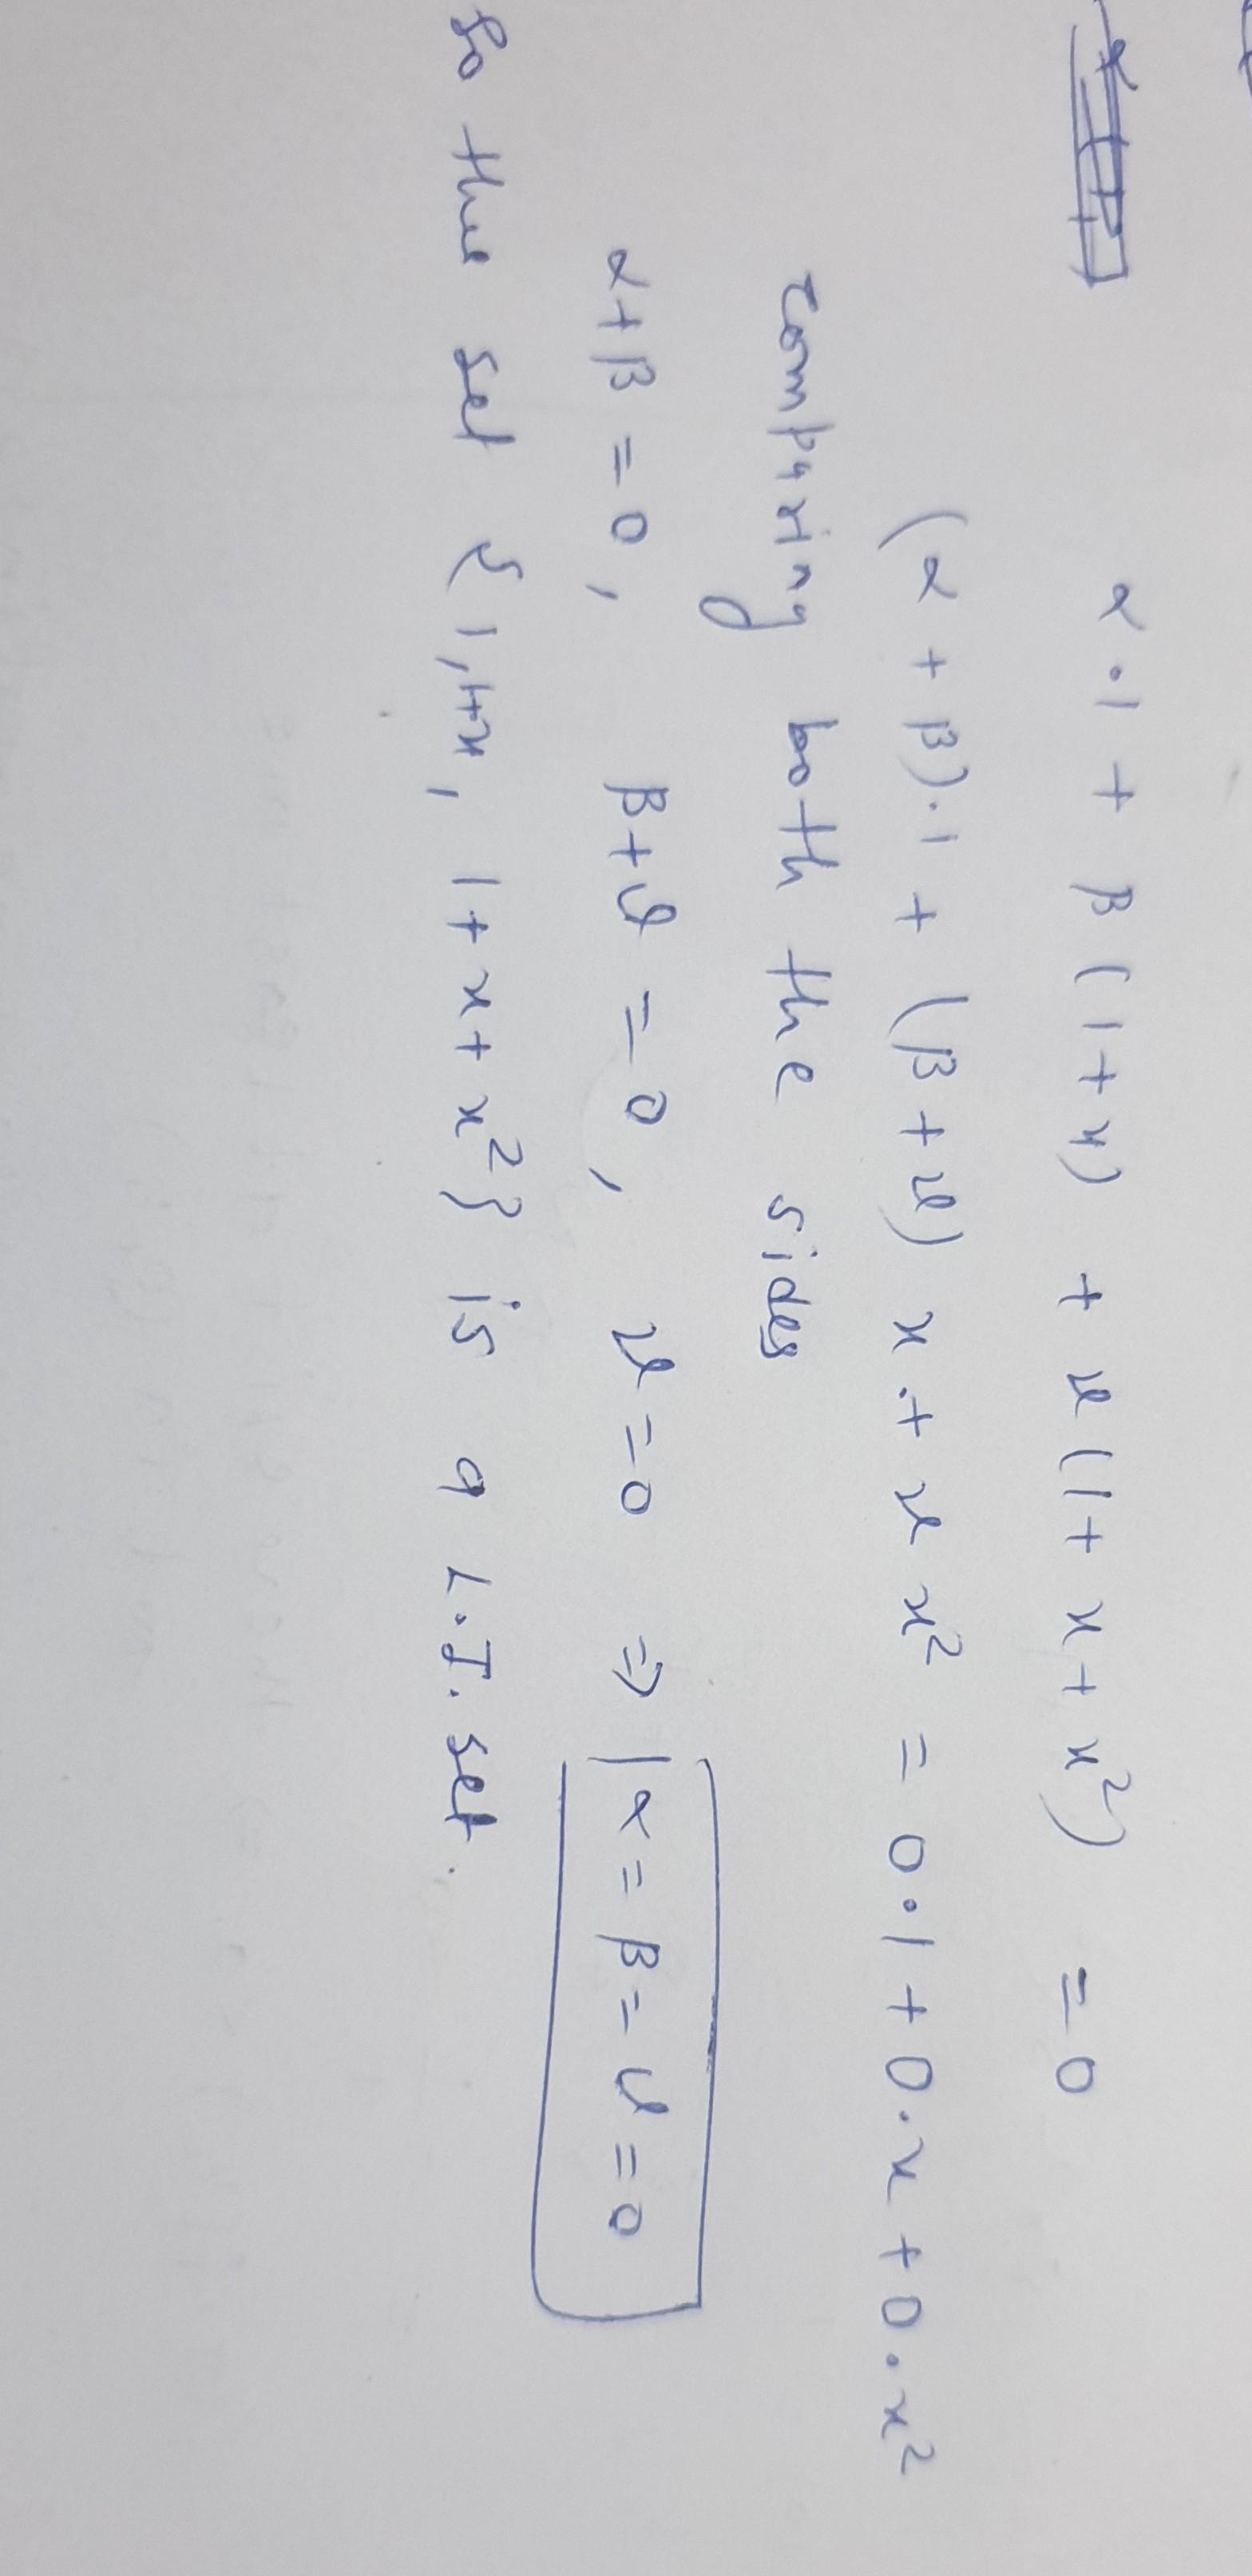 α·1 + β(1+x) + ν(1+x+x²) = 0
(α+β)·1 + (β+ν)x + νx² = 0·1+0·x+0·x²
comparing both the sides
α+β=0, β+ν=0, ν=0 ⇒ α=β=ν=0
So the set {1,1+x, 1+x+x²} is a L.I. set.